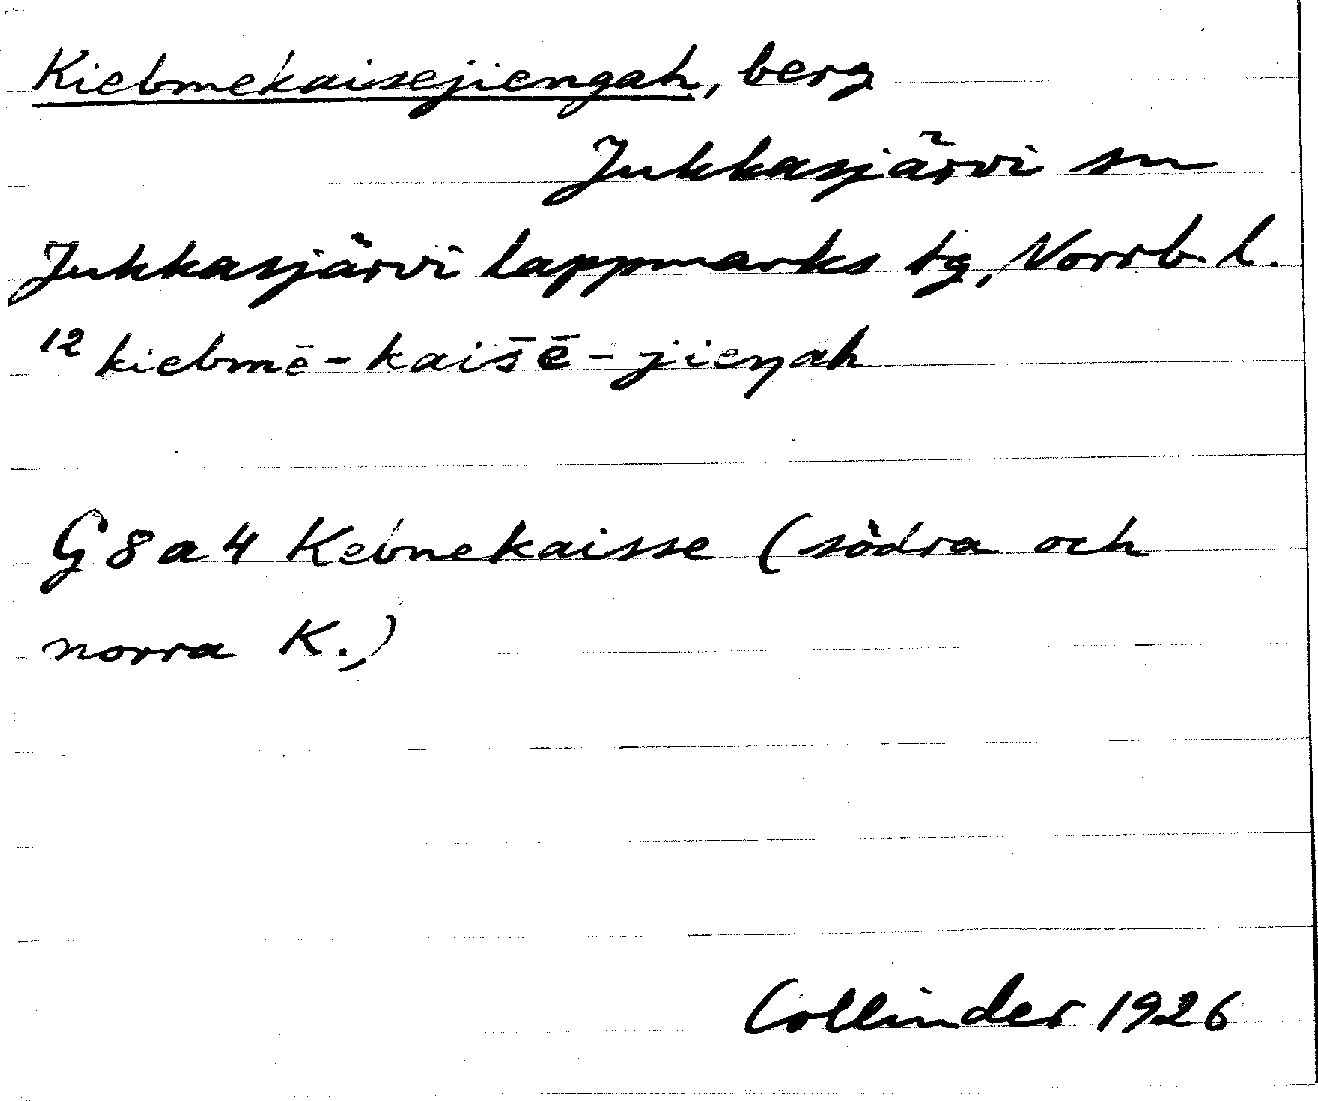 Kiebmekaisejiengah, berg
Jukkasjärvi sn
Jukkasjärvi lappmarks tg, Norrb. l.
12 kiebmē-kais̄ē-jieŋah
G8a4 Kebnekaisse (södra och
norra K.)
Collinder 1926